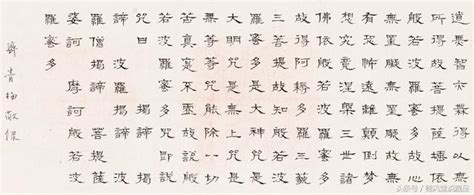 道無智亦無得以無
所得故菩提薩埵依
般若波羅蜜多故心
無罣礙無罣礙故無
有恐怖遠離顛倒夢
想究竟涅槃三世諸
佛依般若波羅蜜多
故得阿耨多羅三藐
三菩提故知般若波
羅蜜多是大神咒是
大明咒是無上咒是
無等等咒能除一切
苦真實不虛故說般
若波羅蜜多咒即說
咒曰 揭諦揭
諦 波羅揭諦 波
羅僧揭諦 菩提薩
婆訶 摩訶般若波
羅蜜多
头条号